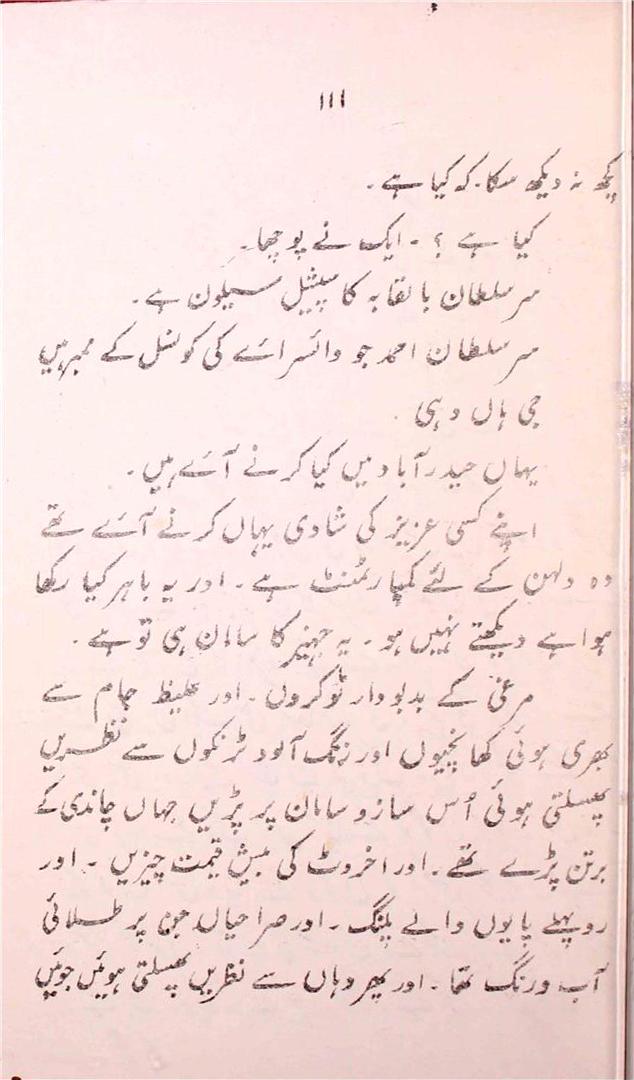 ۱۱۱
کچھ نہ دیکھ سکا۔ کہ کیا ہے۔
کیا ہے ؟ ۔ ایک نے پوچھا۔
سر سلطان بالقابہ کا سپیشل سیلون ہے۔
سر سلطان احمد جو وائسرائے کی کونسل کے ممبر ہیں
جی ہاں وہی ۔
یہاں حیدرآباد میں کیا کرنے آئے ہیں۔
اپنے کسی عزیز کی شادی یہاں کرنے آئے تھے
وہ دلہن کے لئے کمپارٹمنٹ ہے ۔ اور یہ باہر کیا رکھا
ہوا ہے دیکھتے نہیں ہو ۔ یہ جہیز کا سامان ہی تو ہے ۔
مرغی کے بدبودار ٹوکروں ۔ اور غلیظ جام سے
بھری ہوئی کھانچیوں اور زنگ آلود ٹرنکوں سے نظریں
پھسلتی ہوئی اُس سازو سامان پر پڑیں جہاں چاندی کے
برتن پڑے تھے ۔ اور اخروٹ کی بیش قیمت چیزیں ۔ اور
روپہلے پایوں والے پلنگ ۔ اور صراحیاں جن پر طلائی
آب و رنگ تھا ۔ اور پھر وہاں سے نظریں پھسلتی ہوئیں جوئیں